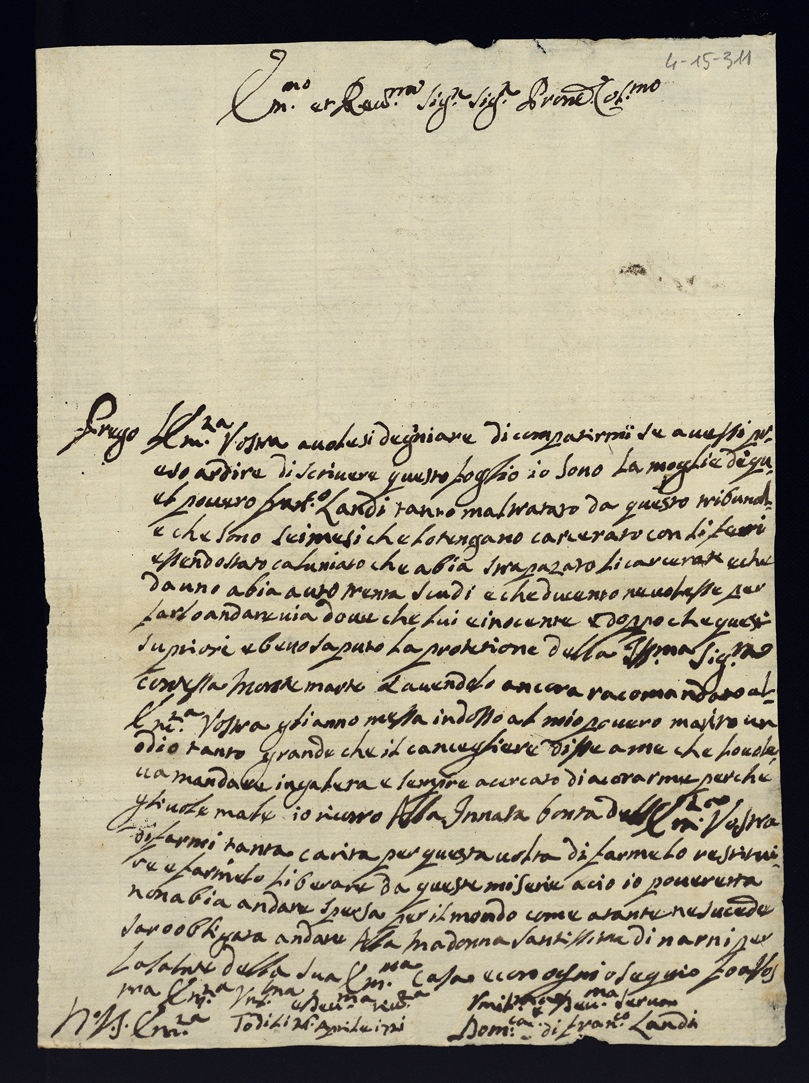 4-15-311
Em.mo et Reu.mo Sig.re Sig.re Prone Col.mo
Prego Em.za Vostra auolesi degniare di compatirmi se auessi pr
eso ardire di scriuere questo foglio io sono la moglie di qu
el pouero fran.co Landi tanto maltratato da questo tribunal
e che sono sei mesi che lo tengano carcerato con li ferri
essendo stato caluniato che abia strapazato li carcerati e che
da uno abia auto trenta scudi e che ducento ne uolesse per
farlo andare uia doue che lui e inocente e doppo che questi
supriori ebeno saputo la protetione della Ill.ma Sig.ra
contessa Monte marte e auendelo ancora racomandato al
Em.za Vostra gli anno messa indosso al mio pouero marito un
odio tanto grande che il cancegliere disse a me che lo uole
ua mandare in galera e sempre a cercato di acorarme perche
gli uole male io ricorro Alla Innata bonta dell Em.za Vostra
di farmi tanta carita per questa uolta di farmelo restitui
re e farmelo liberare da queste miserie acio io pouereta
non abia andare spersa per il mondo come a tante ne sucede
saro obligata andare Alla Madonna Santissima di narni per
la salute della sua Em.ma Casa e con ogni osequio fo a Vos
tra Em.za
Todi li Aprile
Deu.ma Serua
Dom.ca di fran.co Landi